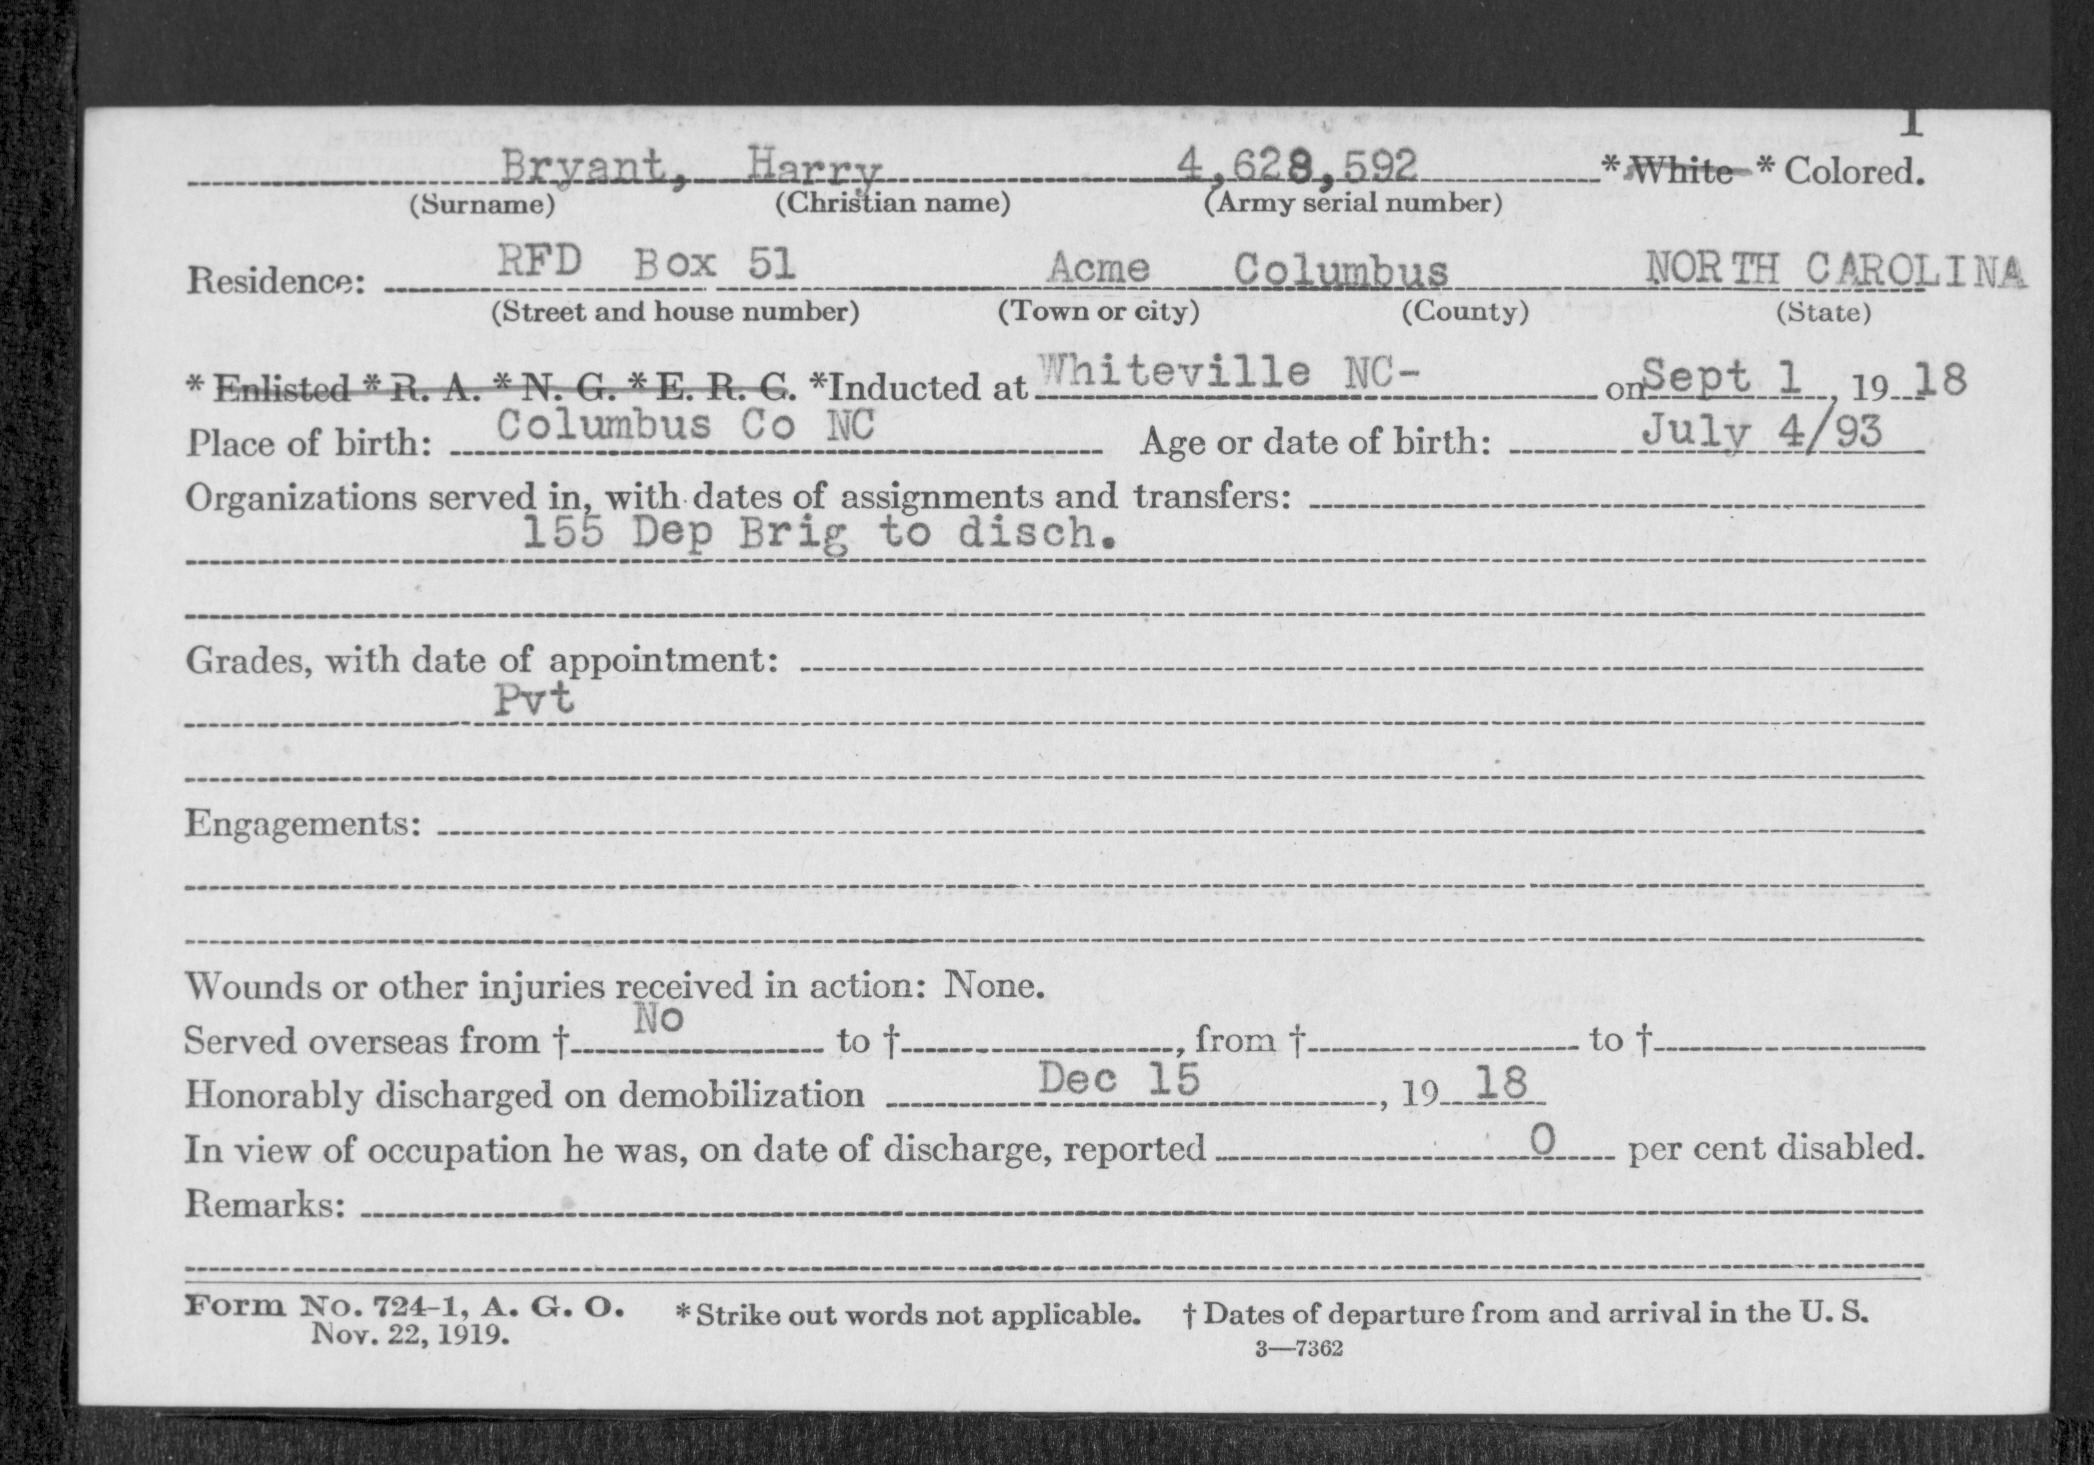 1
Bryant, Harry 4,628,592 * White * Colored.
(Surname) (Christian name) (Army serial number)
Residence: RFD Box 51 Acme Columbus NORTH CAROLINA
(Street and house number) (Town or city) (County) (State)
* Enlisted * R. A. * N. G. * E. R. C. *Inducted at Whiteville NC- on Sept 1, 1918
Place of birth: Columbus Co NC Age or date of birth: July 4/93
Organizations served in, with dates of assignments and transfers:
155 Dep Brig to disch.
Grades, with date of appointment:
Pvt
Engagements:
Wounds or other injuries received in action: None.
Served overseas from † No to †, from † to †
Honorably discharged on demobilization Dec 15, 1918
In view of occupation he was, on date of discharge, reported 0 per cent disabled.
Remarks:
Form No. 724-1, A. G. O. * Strike out words not applicable. † Dates of departure from and arrival in the U. S.
Nov. 22, 1919. 3—7362